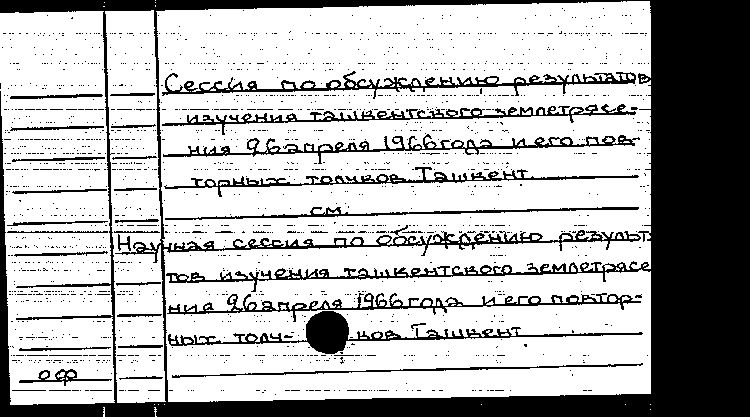 Сессия по обсуждению результатов
изучения ташкентского землетрясе-
ния 26 апреля 1966 года и его пов-
торных толчков. Ташкент.
см.
Научная сессия по обсуждению результ
тов изучения ташкентского землетрясе
ния 26 апреля 1966 года и его повтор-
ных толч- ков. Ташкент
оф